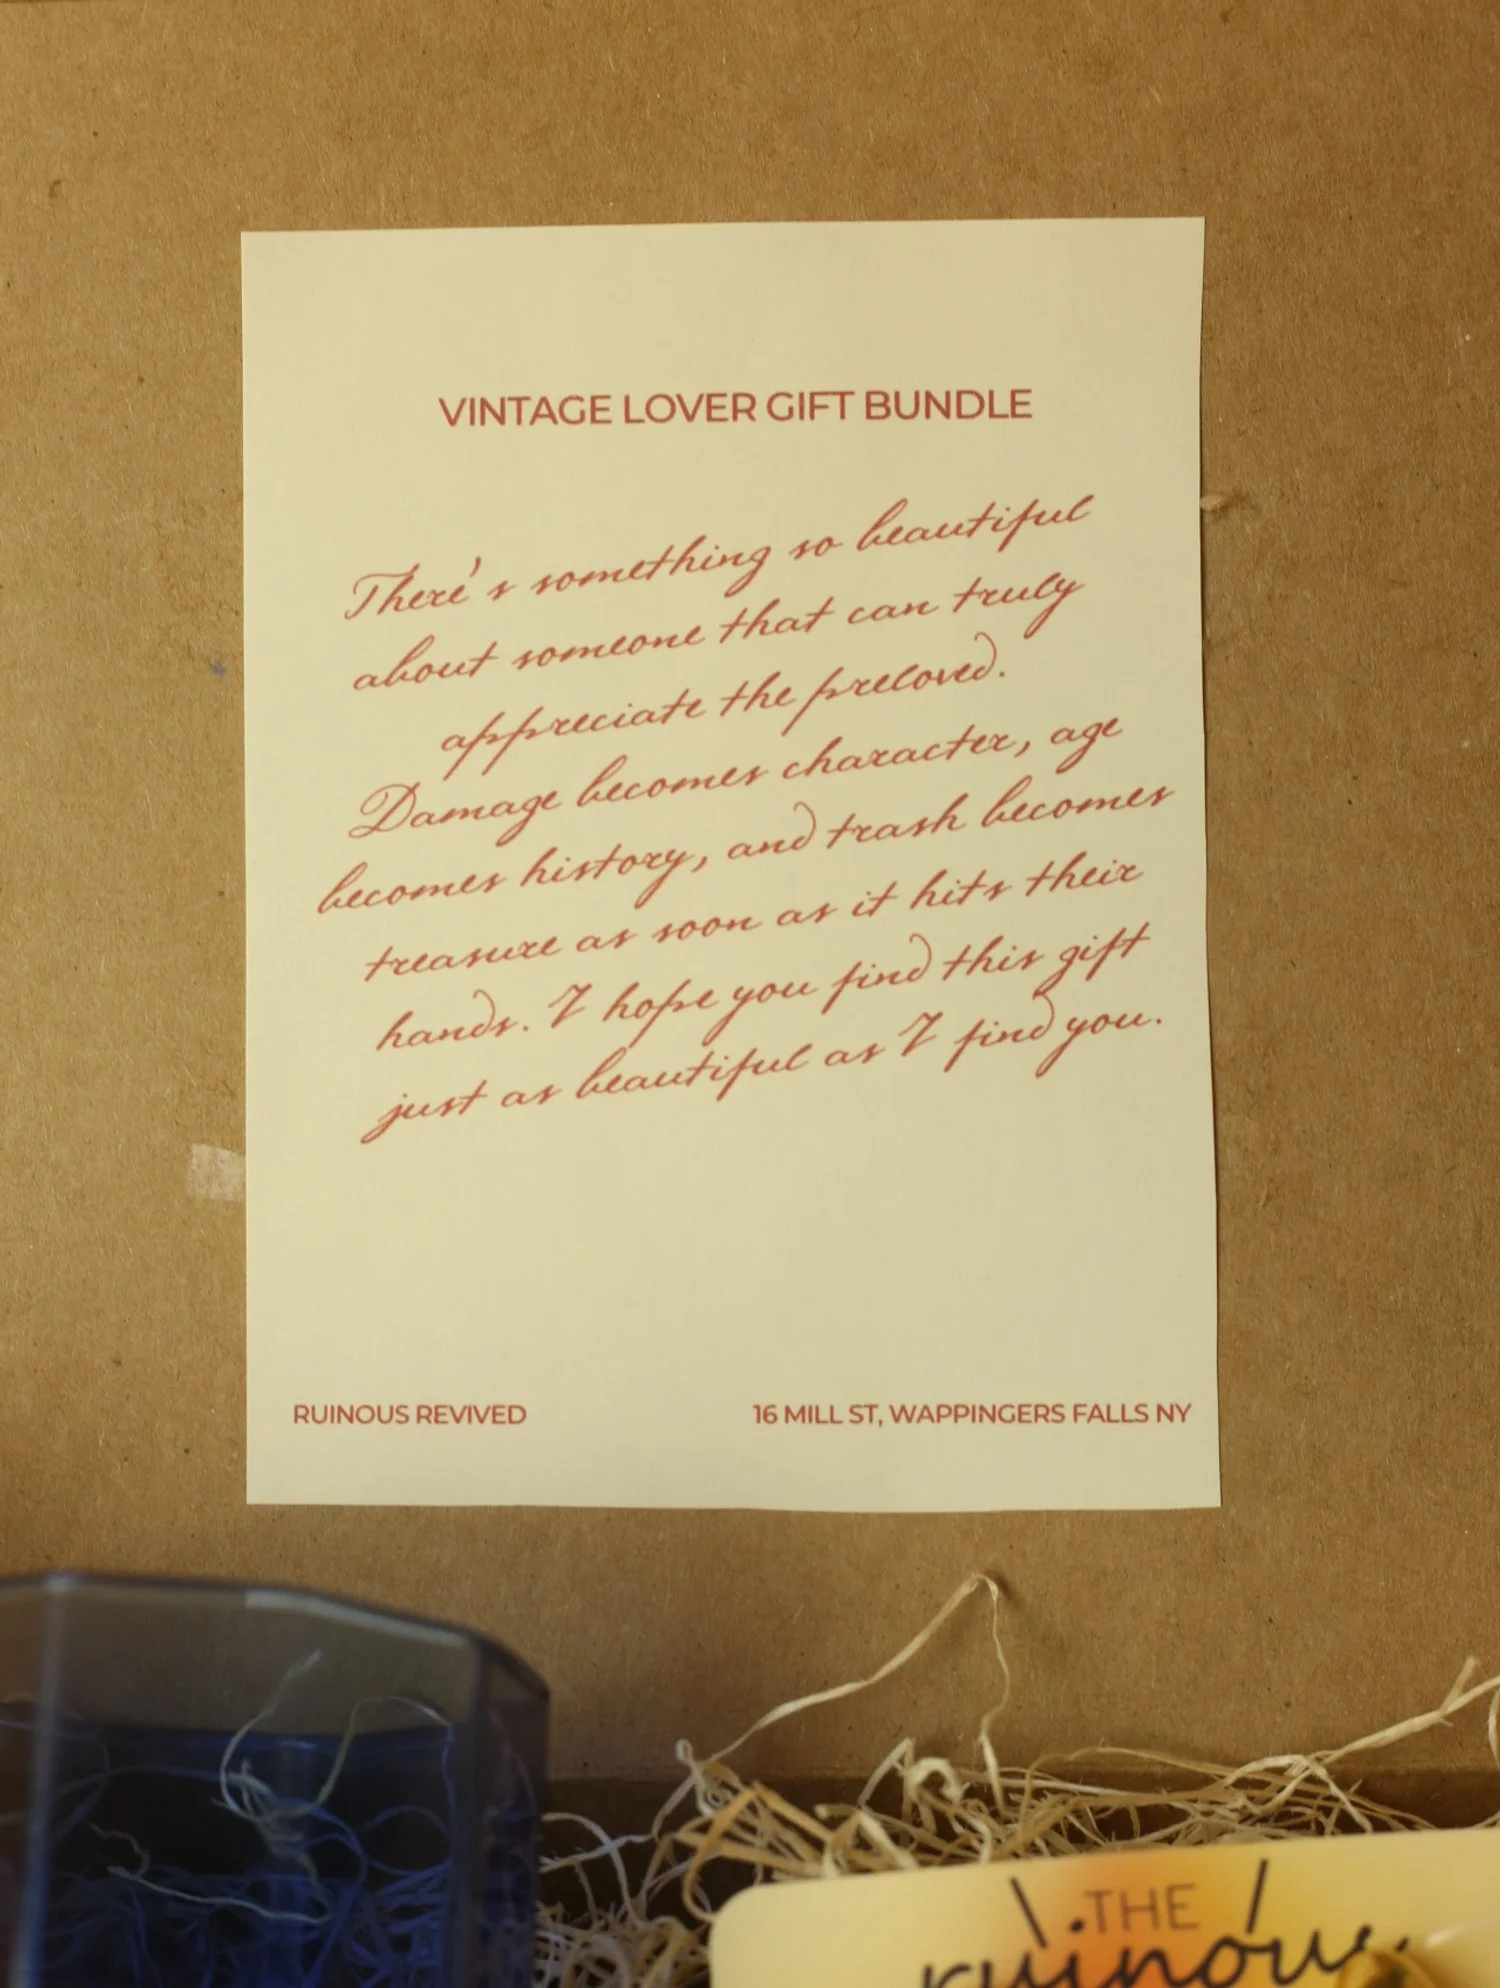 VINTAGE LOVER GIFT BUNDLE
There's something so beautiful
about someone that can truly
appreciate the preloved.
Damage becomes character, age
becomes history, and trash becomes
treasure as soon as it hits their
hands. I hope you find this gift
just as beautiful as I find you.
RUINOUS REVIVED
16 MILL ST, WAPPINGERS FALLS NY
THE
ruinous